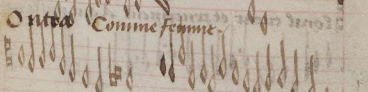 Contra Comme femme